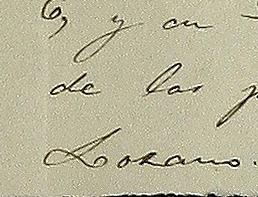 6, y en
de las
Lozano.